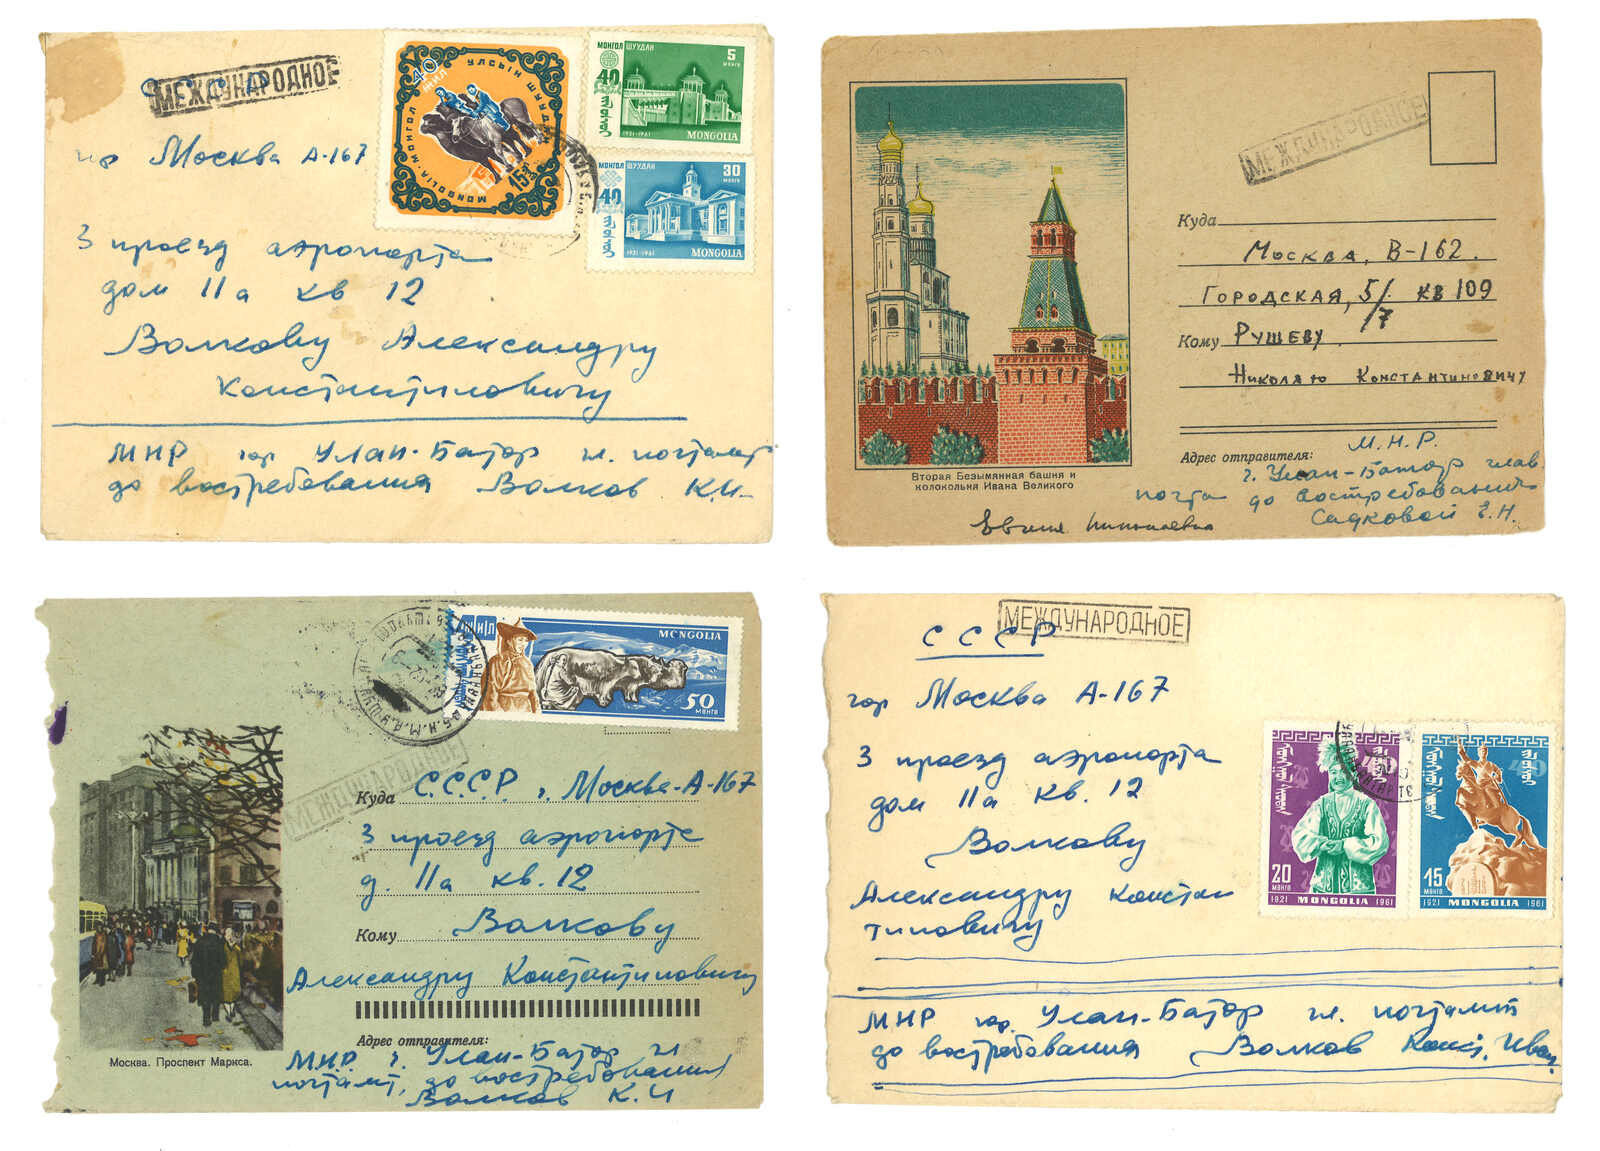 СССР
МЕЖДУНАРОДНОЕ
гор Москва А-167
3 проезд аэропорта
дом 11а кв 12
Волкову Александру
Константиновичу
МНР гор Улан-Батор гл. почтамт
до востребования Волков К.И-
40 ЖИЛ
УЛСЫН ШУУДАН
МОНГОЛ
MONGOLIA
15
МОНГОЛ ШУУДАН
5
МӨНГӨ
40
1921-1961
MONGOLIA
МОНГОЛ ШУУДАН
30
МӨНГӨ
40
1921-1961
MONGOLIA
МЕЖДУНАРОДНОЕ
Куда
Москва, В-162.
Городская, 5/7 кв 109
Кому Рушеву
Николаю Константиновичу
Адрес отправителя: М.Н.Р.
г. Улан-Батор глав.
почта до востребования
Садковой Е.Н.
Вторая Безымянная башня и
колокольня Ивана Великого
MONGOLIA
50
МӨНГӨ
МЕЖДУНАРОДНОЕ
Куда С.С.С.Р г. Москва-А-167
3 проезд аэропорта
д. 11а кв. 12
Кому Волкову
Александру Константиновичу
Адрес отправителя:
МНР г. Улан-Батор гл
почтамт, до востребования
Волков К.И
Москва. Проспект Маркса.
МЕЖДУНАРОДНОЕ
СССР
гор Москва А-167
3 проезд аэропорта
дом 11а кв. 12
Волкову
Александру Констан
тиновичу
20
МӨНГӨ
1921 MONGOLIA 1961
40
15
МӨНГӨ
1921 MONGOLIA 1961
МНР гор. Улан-Батор гл. почтамт
до востребования Волков Конст. Иван.